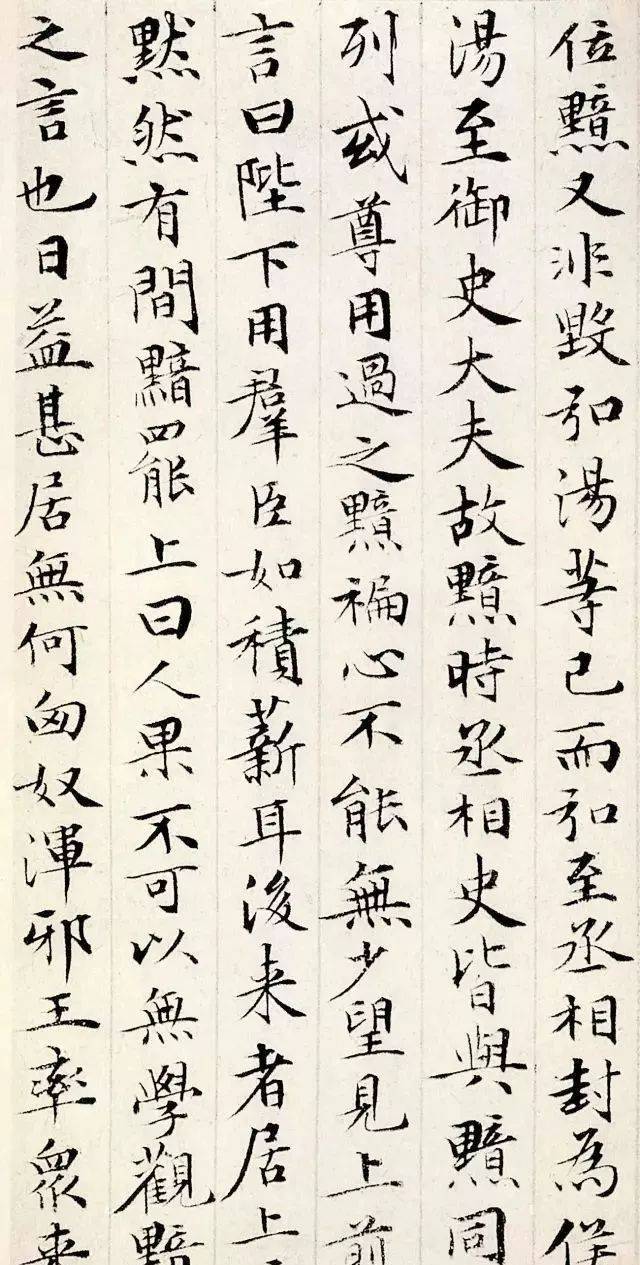 位黯又非毀弘湯等已而弘至丞相封為侯
湯至御史大夫故黯時丞相史皆與黯同
列或尊用過之黯褊心不能無少望見上前
言曰陛下用群臣如積薪耳後来者居上
黙然有間黯罷上曰人果不可以無學觀黯
之言也日益甚居無何匈奴渾邪王率衆来